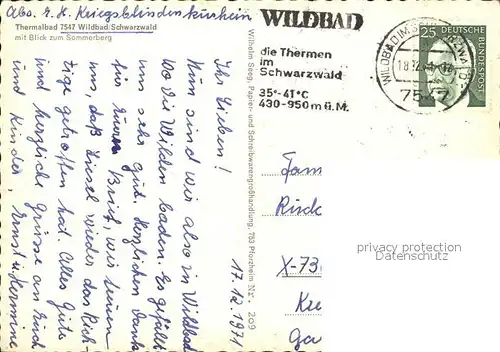 Abs. z. Z. Kriegsblindenkurheim
Thermalbad 7547 Wildbad/Schwarzwald
mit Blick zum Sommerberg
WILDBAD
die Thermen
im
Schwarzwald
35°-41°C
430-950 m ü.M.
WILDBAD IM SCHWARZWALD
18.12.71
7547
25
DEUTSCHE
BUNDESPOST
Wilhelm Seeg, Papier- und Schreibwarengroßhandlung, 753 Pforzheim Nr. 269
Ihr Lieben!
Nun sind wir also in Wildbad
wo die Wilden baden. Es gefällt
uns sehr gut. Herzlichen Dank
für Euren Brief, wir freuen
uns, daß Liesel wieder das Rich-
tige getroffen hat. Alles Gute
und herzliche Grüsse an Euch
und Kinder, Ernst u. Hermine
17.12.1971
Fam
X-73
Kre
privacy protection
oldthing.de